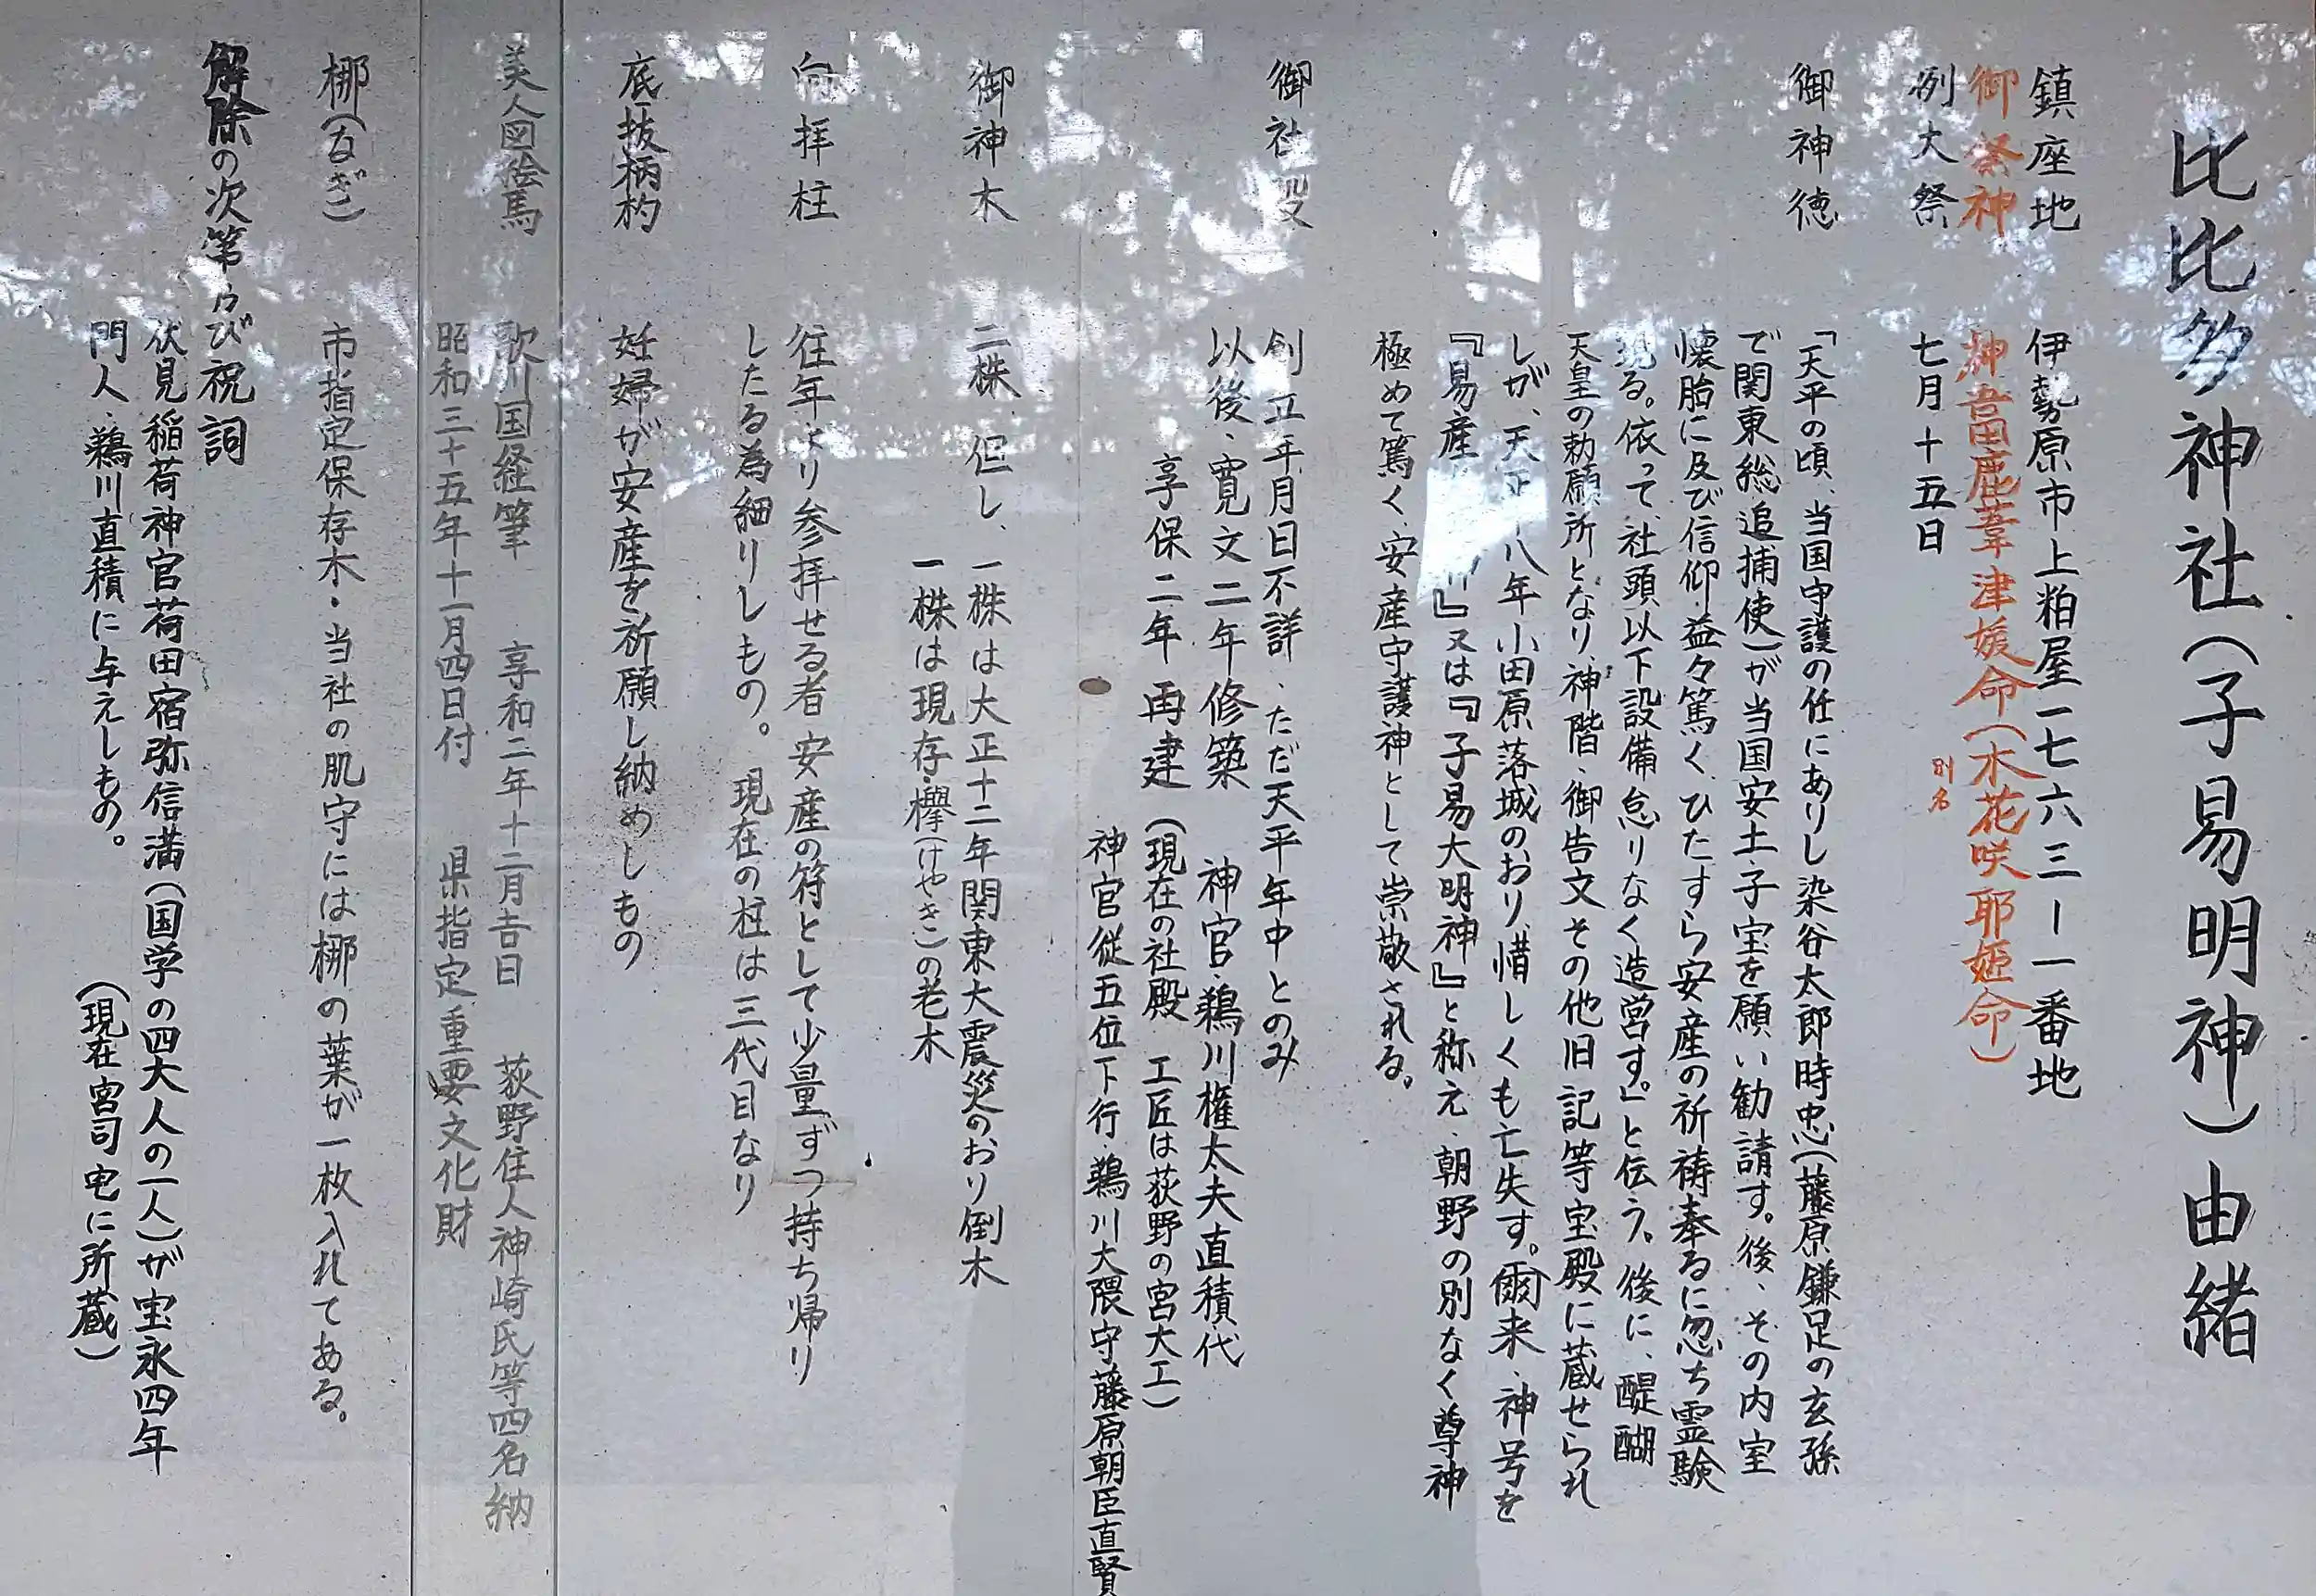 比比多神社（子易明神）由緒
鎮座地 伊勢原市上粕屋一七六三ー一番地
御祭神 神吾田鹿葦津媛命（木花咲耶姫命）
別名
例大祭 七月十五日
御神徳 「天平の頃、当国守護の任にありし染谷太郎時忠（藤原鎌足の玄孫
で関東総追捕使）が当国安土・子宝を願い勧請す。後、その内室
懐胎に及び信仰益々篤く、ひたすら安産の祈祷奉るに忽ち霊験
現る。依って、社頭以下設備怠りなく造営す。」と伝う。後に、醍醐
天皇の勅願所となり、神階・御告文その他旧記等宝殿に蔵せられ
しが、天正十八年小田原落城のおり、惜しくも亡失す。爾来、神号を
『易産 』又は『子易大明神』と称え、朝野の別なく尊神
極めて篤く、安産守護神として崇敬される。
御社殿 創立年月日不詳、ただ天平年中とのみ
以後、寛文二年修築 神官・鵜川権太夫直積代
享保二年再建（現在の社殿 工匠は荻野の宮大工）
神官従五位下行・鵜川大隈守藤原朝臣直賢
御神木 二株 但し、一株は大正十二年関東大震災のおり倒木
一株は現存・欅（けやき）の老木
向拝柱 往年より参拝せる者 安産の符として少量ずつ持ち帰り
したる為細りしもの。現在の柱は三代目なり
底抜柄杓 妊婦が安産を祈願し納めしもの
美人図絵馬 歌川国経筆 享和二年十二月吉日 荻野住人神崎氏等四名納
昭和三十五年十一月四日付 県指定重要文化財
梛（なぎ） 市指定保存木・当社の肌守には梛の葉が一枚入れてある。
解除の次第及び祝詞
伏見稲荷神官荷田宿弥信満（国学の四大人の一人）が宝永四年
門人・鵜川直積に与えしもの。 （現在宮司宅に所蔵）